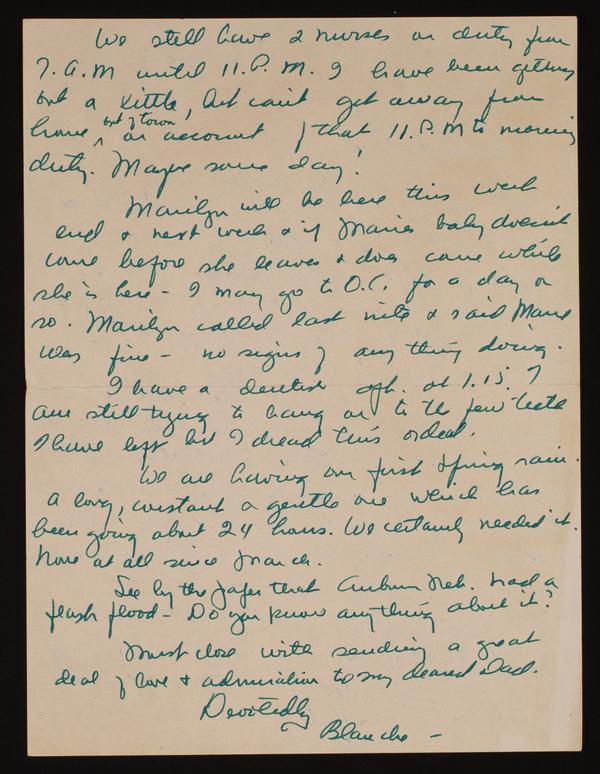 We still have 2 nurses on duty from
7. A.M until 11. P.M. I have been getting
out a little, but can't get away from
home out of town, on account of that 11. P.M to morning
duty. Maybe some day!
Marilyn will be here this week
end & next week & if Maries baby doesn't
come before she leaves & does come while
she is here - I may go to O.C. for a day or
so. Marilyn called last nite & said Marie
was fine - no signs of any thing doing.
I have a dentist apt. at 1.15. I
am still trying to hang on to the few teeth
I have left but I dread this ordeal.
We are having our first spring rain.
A long, constant & gentle one which has
been going about 24 hours. We certainly needed it.
None at all since March.
See by the paper that Auburn Neb. had a
flash flood - Do you know anything about it?
Must close with sending a great
deal of love & admiration to my dearest Dad.
Devotedly
Blanche -